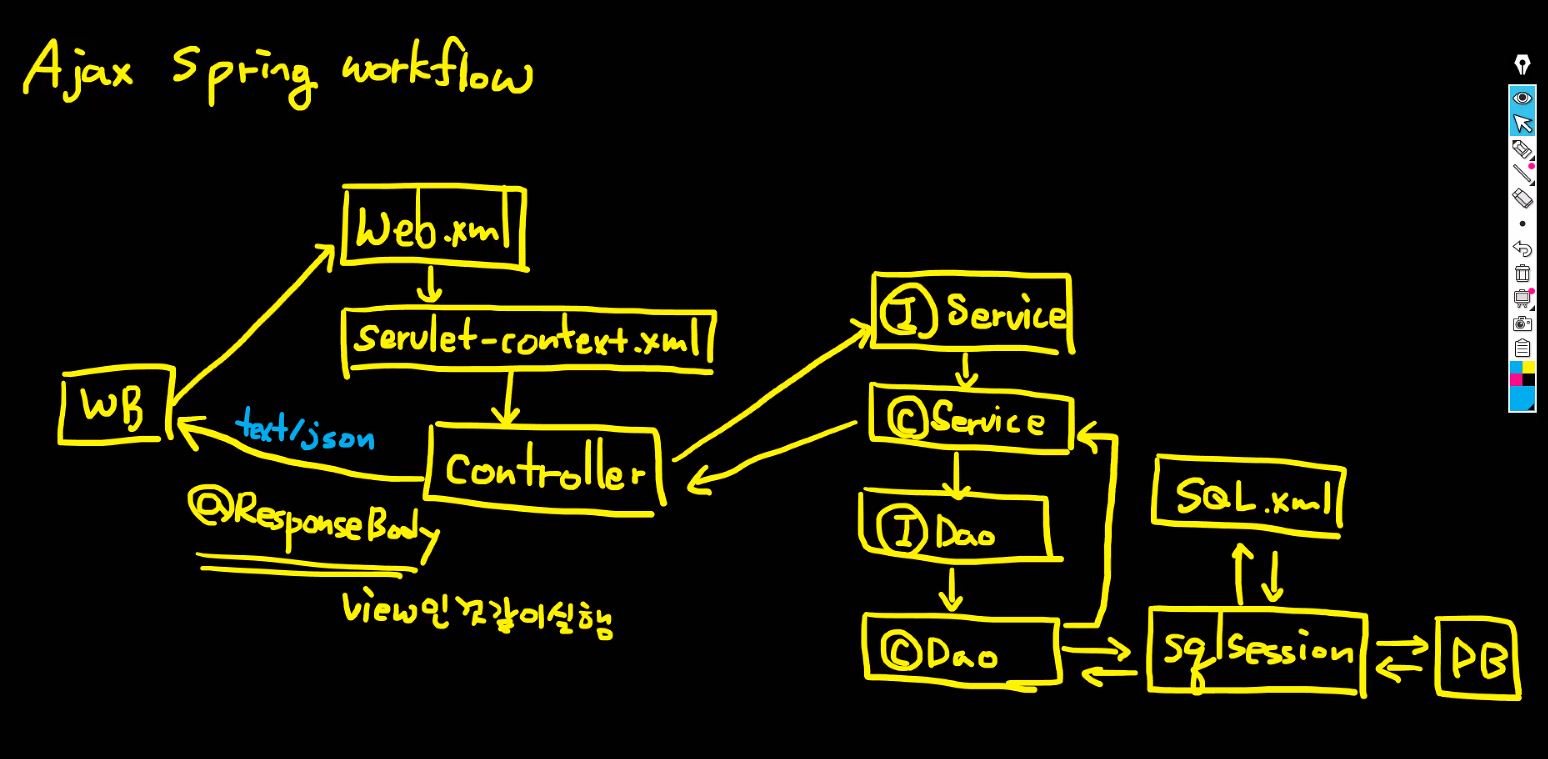 Ajax Spring workflow
Web.xml
servlet-context.xml
WB
text/json
Controller
@ResponseBody
view인것같이실행
I Service
C Service
I Dao
C Dao
SQL.xml
sqlSession
DB